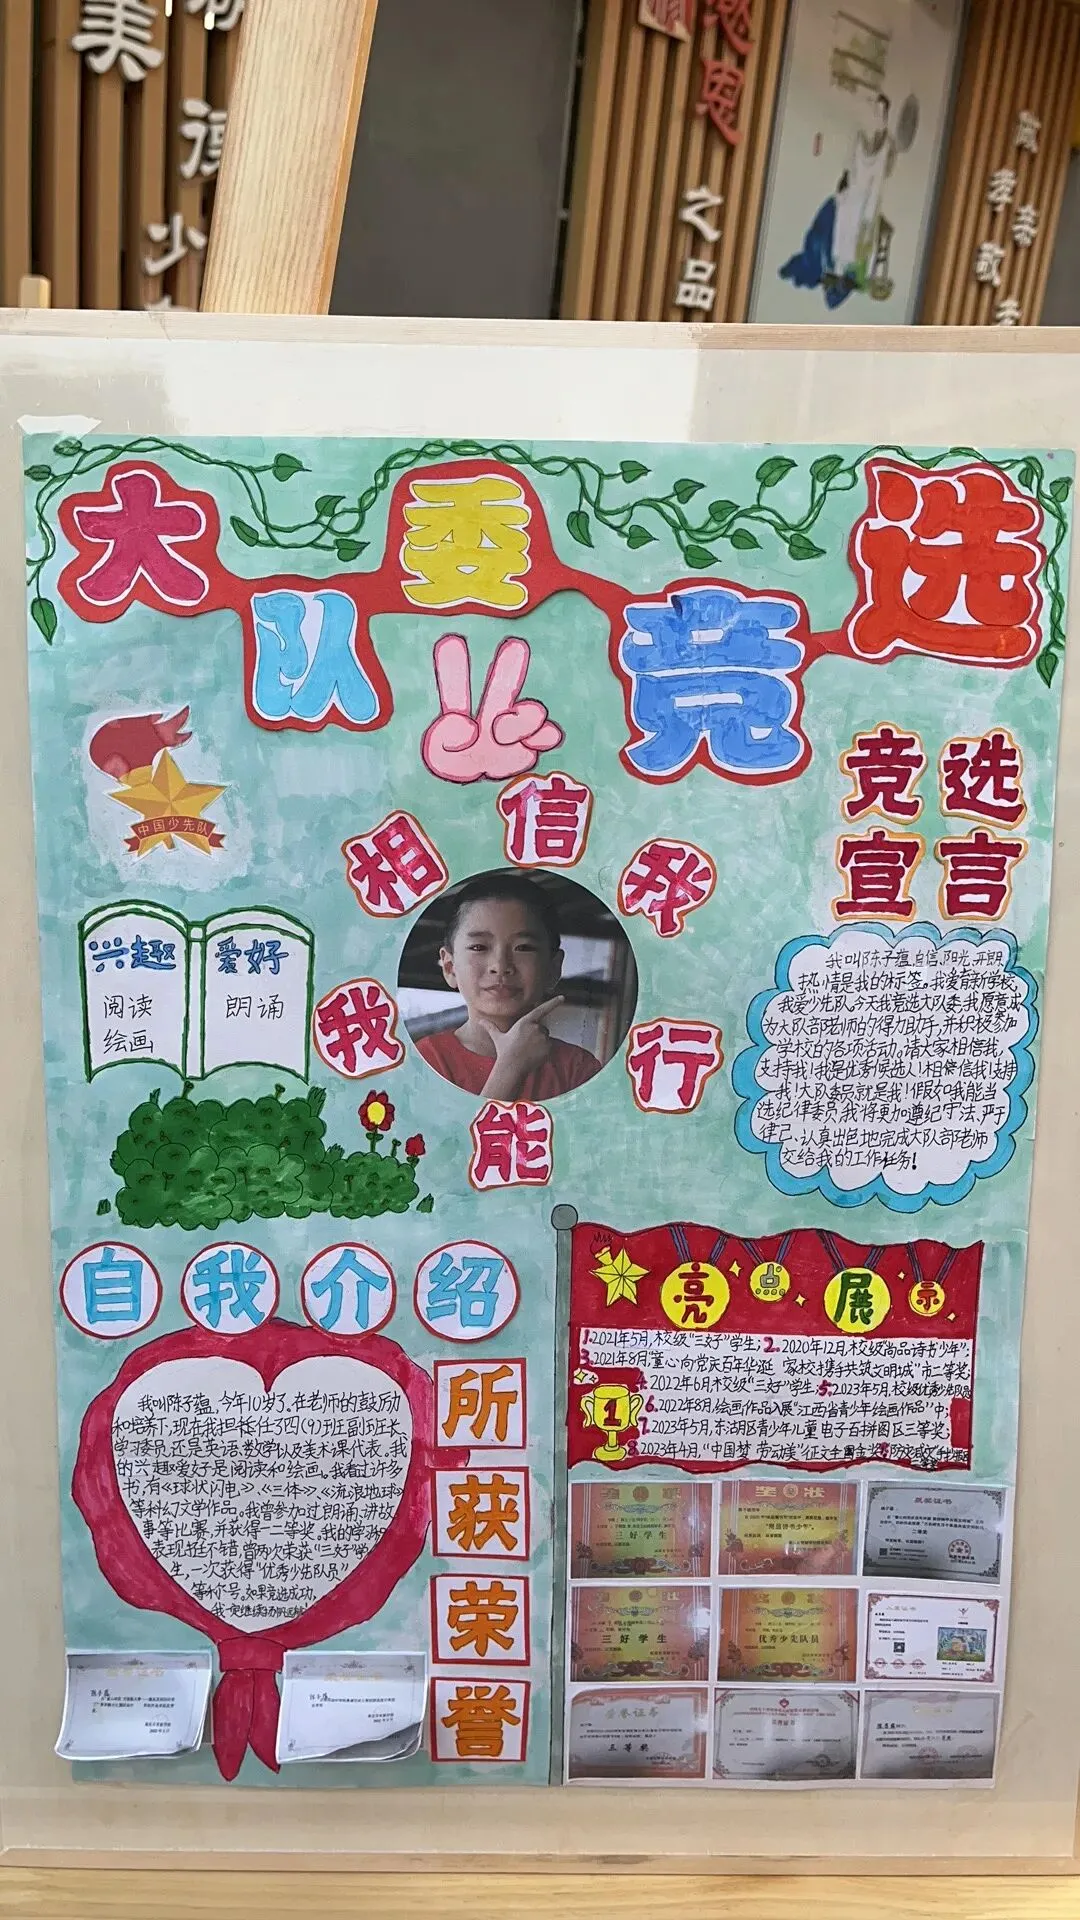 美
少
感恩
之品
孝亲敬
大队委竞选
中国少先队
相信我我能行
竞选
宣言
兴趣 爱好
阅读 朗诵
绘画
我叫陈子蕴,自信、阳光、开朗
热情是我的标签。我爱育新学校,
我爱少先队,今天我竞选大队委,我愿意成
为大队部老师的得力助手,并积极参加
学校的各项活动。请大家相信我,
支持我!我是优秀候选人!相信我!支持
我!大队委员就是我!假如我能当
选纪律委员,我将更加遵纪守法、严于
律己、认真出色地完成大队部老师
交给我的工作任务!
自我介绍
我叫陈子蕴,今年10岁了。在老师的鼓励
和培养下,现在我担任了四(9)班副班长、
学习委员,还是英语、数学以及美术课代表。我
的兴趣爱好是阅读和绘画。我看过许多
书,有《球状闪电》、《三体》、《流浪地球》
等科幻文学作品。我曾参加过朗诵、讲故
事等比赛,并获得一二等奖。我的学习和
表现挺不错,曾两次荣获“三好”学
生,一次获得“优秀少先队员”
等称号。如果竞选成功,
我一定继续
所获荣誉
亮点展示
1.2021年5月,校级“三好”学生; 2.2020年12月,校级“尚品诗书少年”;
3.2021年8月,“童心向党庆百年华诞 家校携手共筑文明城”市二等奖;
4.2022年6月,校级“三好”学生; 5.2023年5月,校级优秀少先队员
6.2022年8月,绘画作品入展“江西省青少年绘画作品”中;
7.2023年5月,东湖区青少年儿童电子百拼图区三等奖;
8.2023年4月,“中国梦 劳动美”征文全国金奖;
1
奖状
三好学生
奖状
“尚品诗书少年”
获奖证书
二等奖
三好学生
优秀少先队员
入展证书
荣誉证书
三等奖